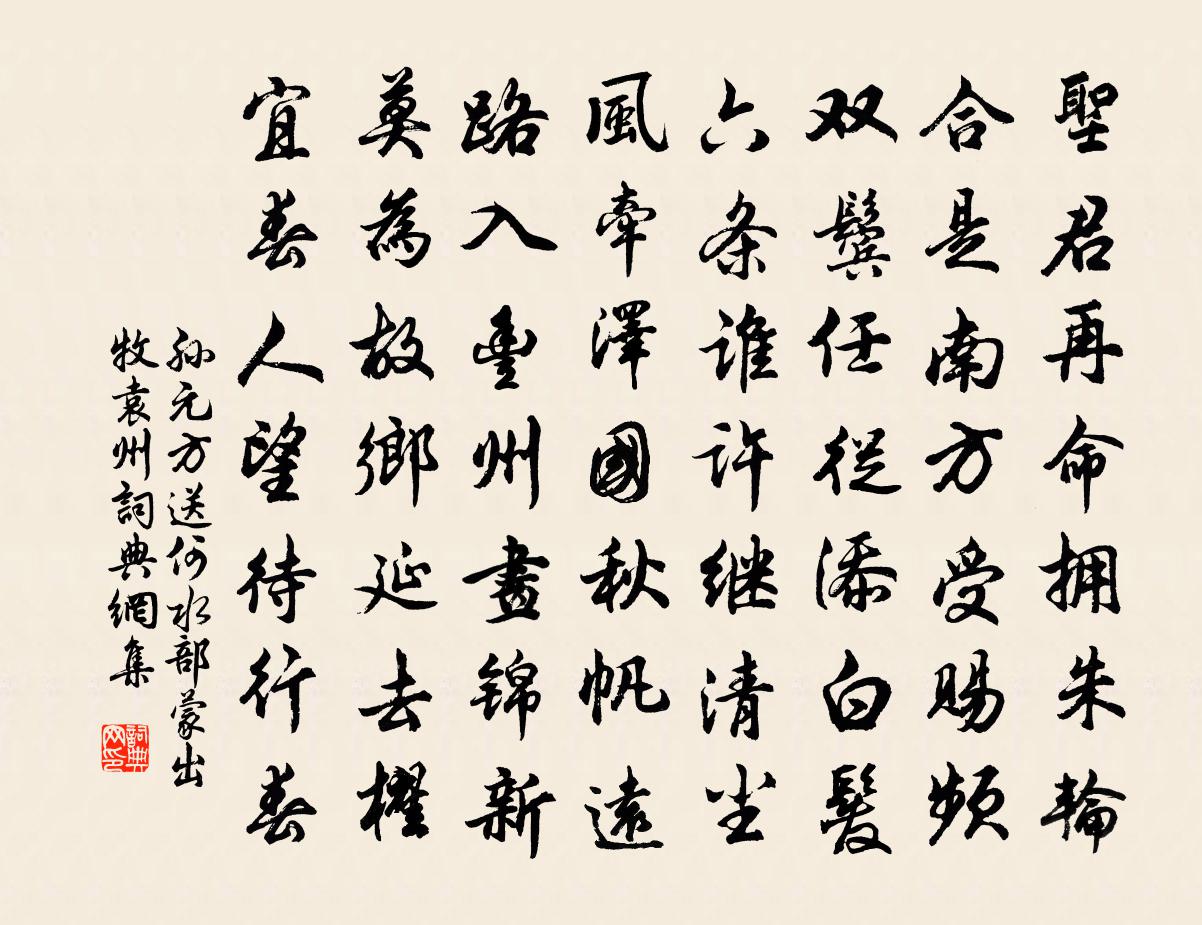 聖君再命拥朱輪
合是南方受賜頻
双鬓任從添白髮
六条谁许继清尘
風牽澤國秋帆遠
路入豊州晝锦新
莫為故鄉延去櫂
宜春人望待行春
孙元方送何水部蒙出
牧袁州詞典網集
詞典网印